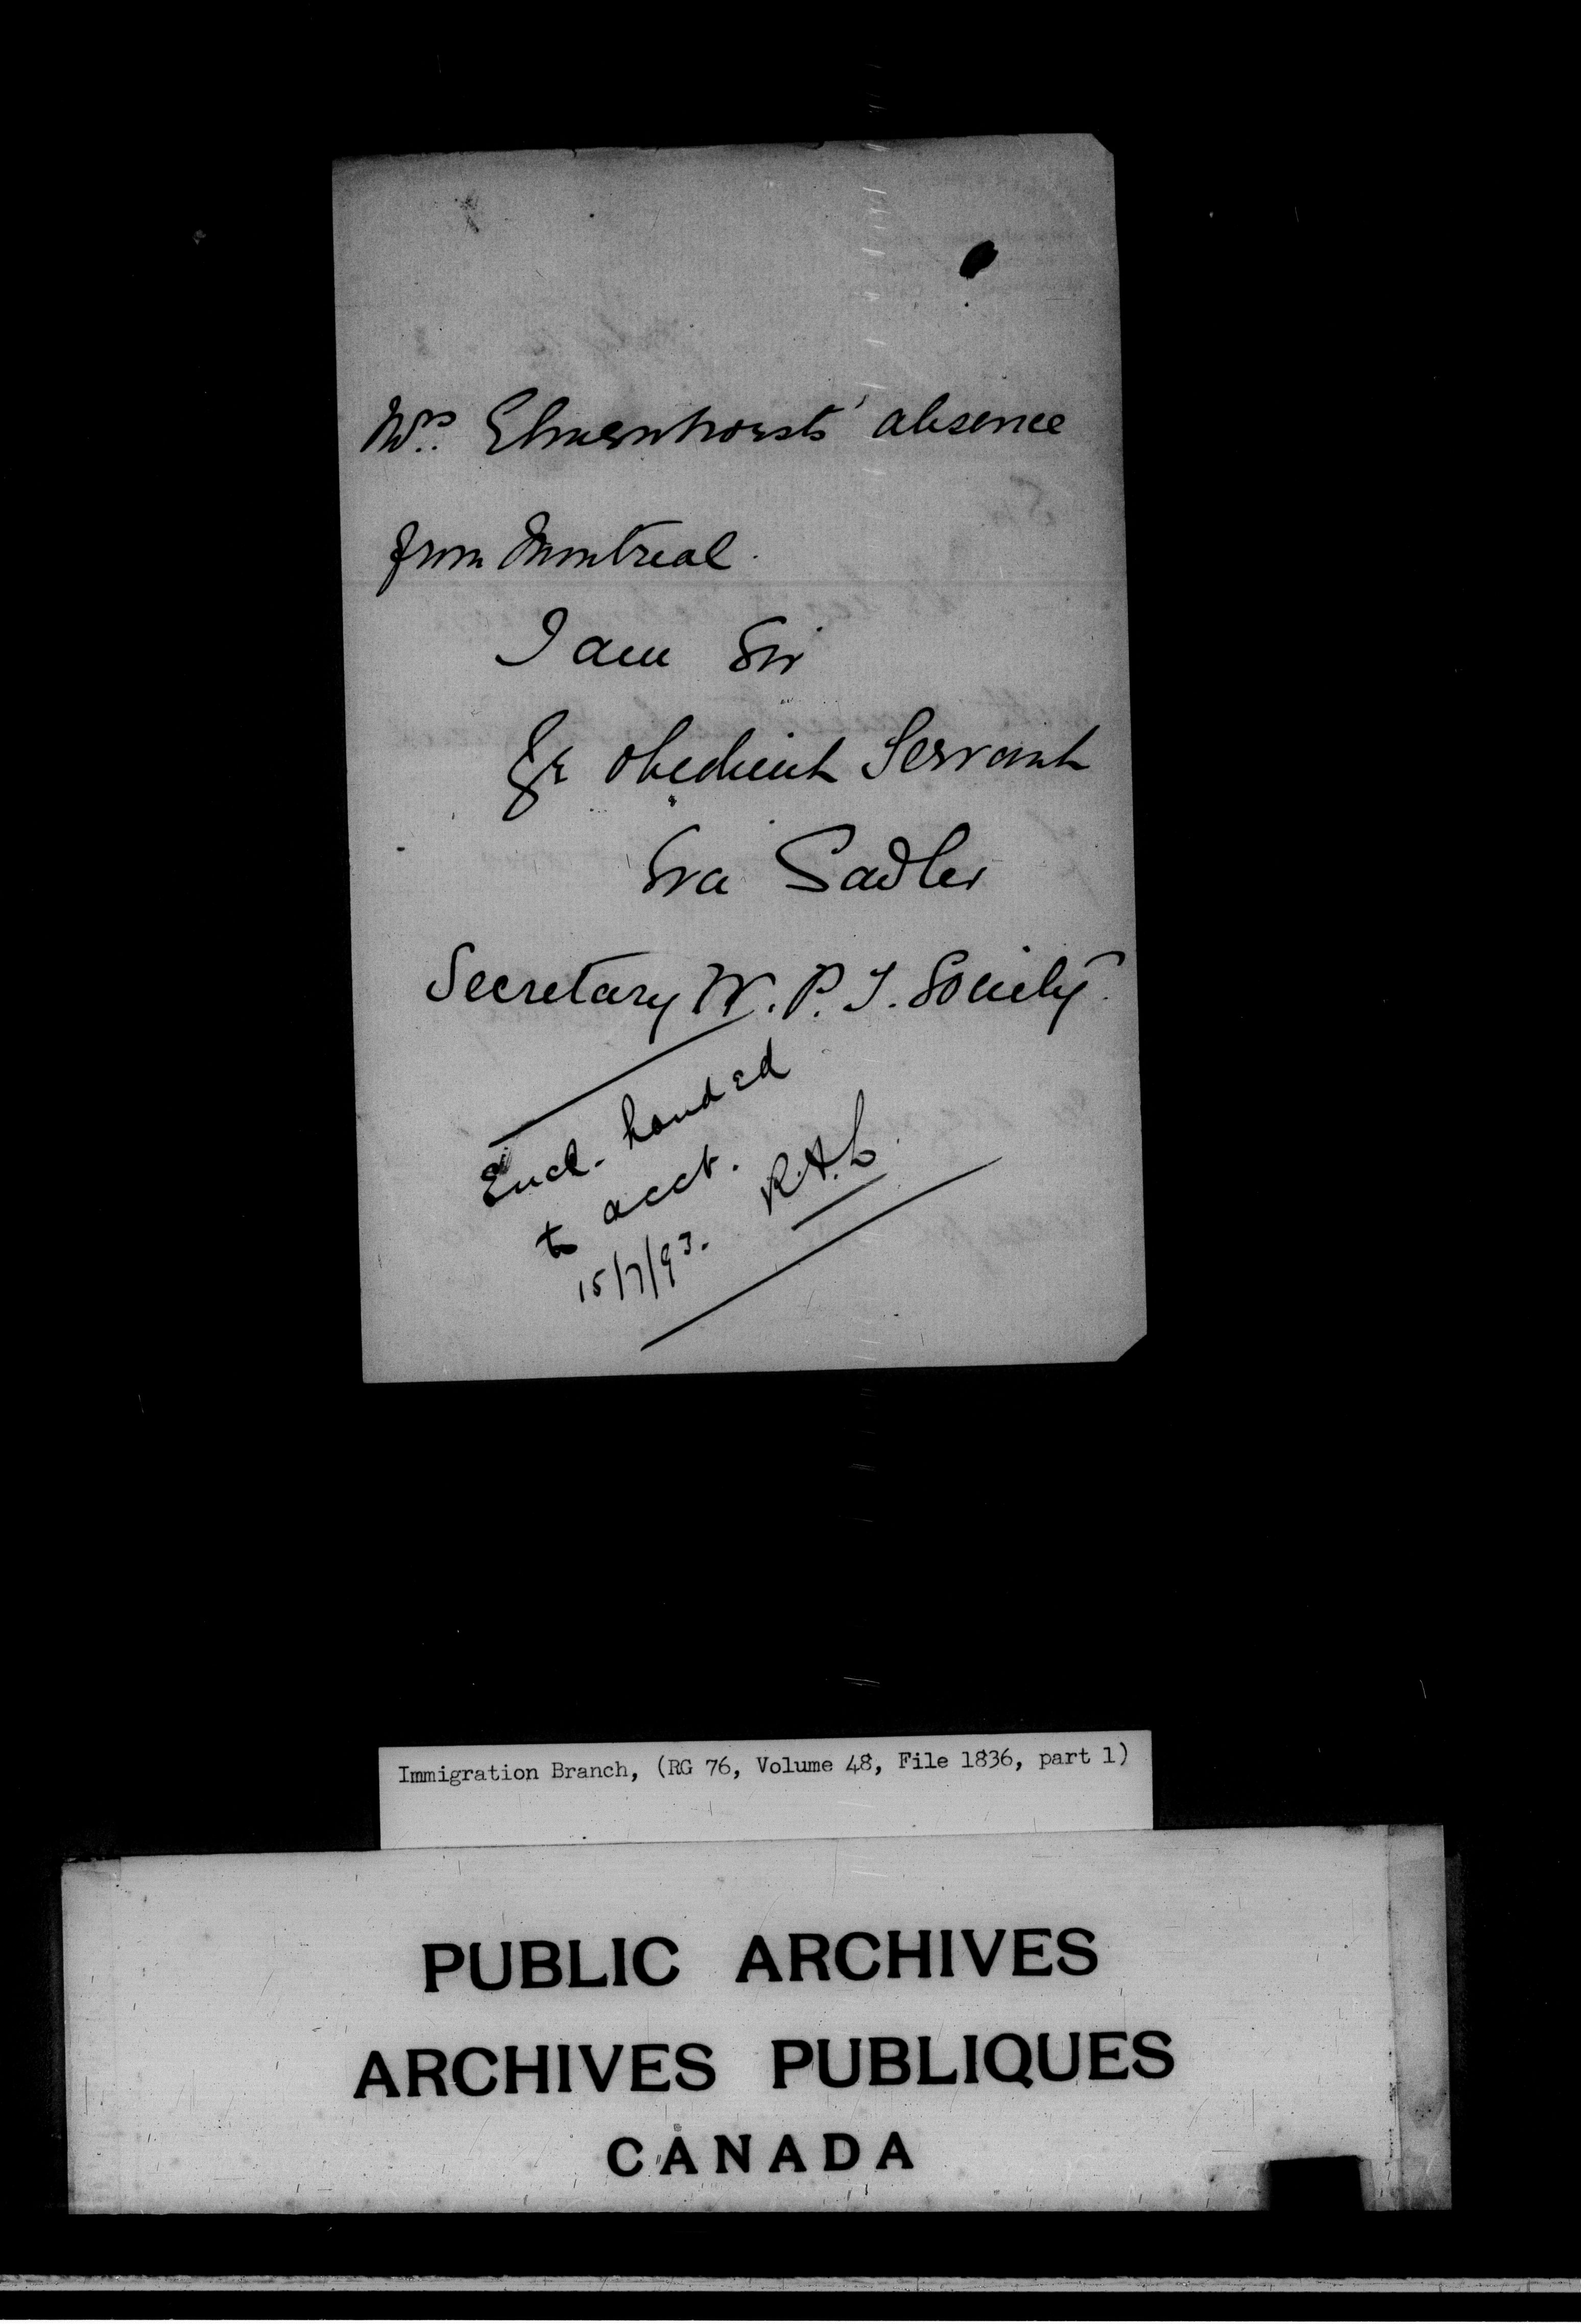 Mrs. Elmenhorsts' absence
from Montreal.
I am Sir
Yr obedient Servant
Eva Sadler
Secretary W. P. I. Society.
Encl. handed
to acct.
R.A.L.
15/7/93.
Immigration Branch, (RG 76, Volume 48, File 1836, part 1)
PUBLIC ARCHIVES
ARCHIVES PUBLIQUES
CANADA